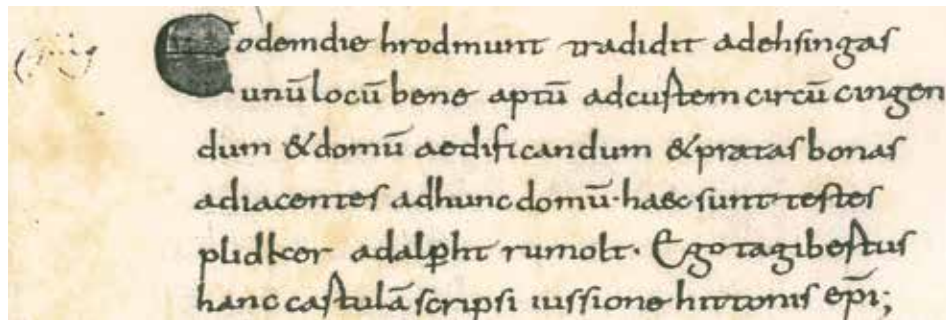 Eodemdie hrodmunt tradidit adehsingas
unū locū bene aptū adcustem circū cingen
dum &domū aedificandum &pratas bonas
adiacentes adhunc domū· haec sunt testes
plidker adalp̄ht rumolt· Ego tagibertus
hanc castulā scripsi iussione hittonis ep̄i;